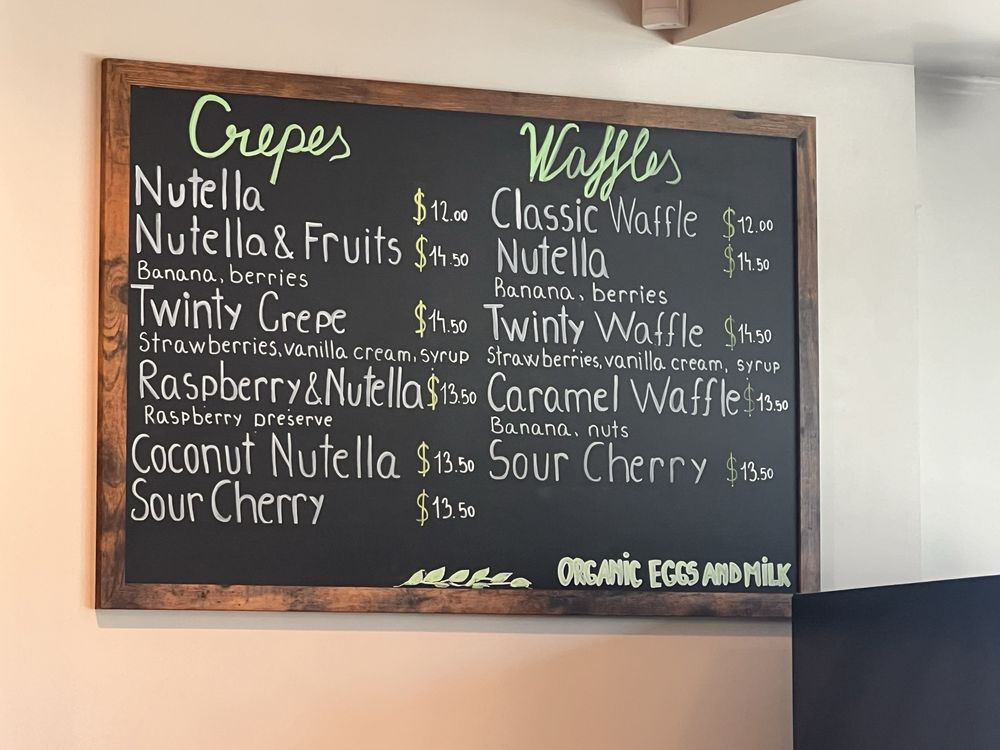 Crepes
Nutella $12.00
Nutella & Fruits $14.50
Banana, berries
Twinty Crepe $14.50
Strawberries, vanilla cream, syrup
Raspberry & Nutella $13.50
Raspberry preserve
Coconut Nutella $13.50
Sour Cherry $13.50
Waffles
Classic Waffle $12.00
Nutella $14.50
Banana, berries
Twinty Waffle $14.50
Strawberries, vanilla cream, syrup
Caramel Waffle $13.50
Banana, nuts
Sour Cherry $13.50
ORGANIC EGGS AND MILK